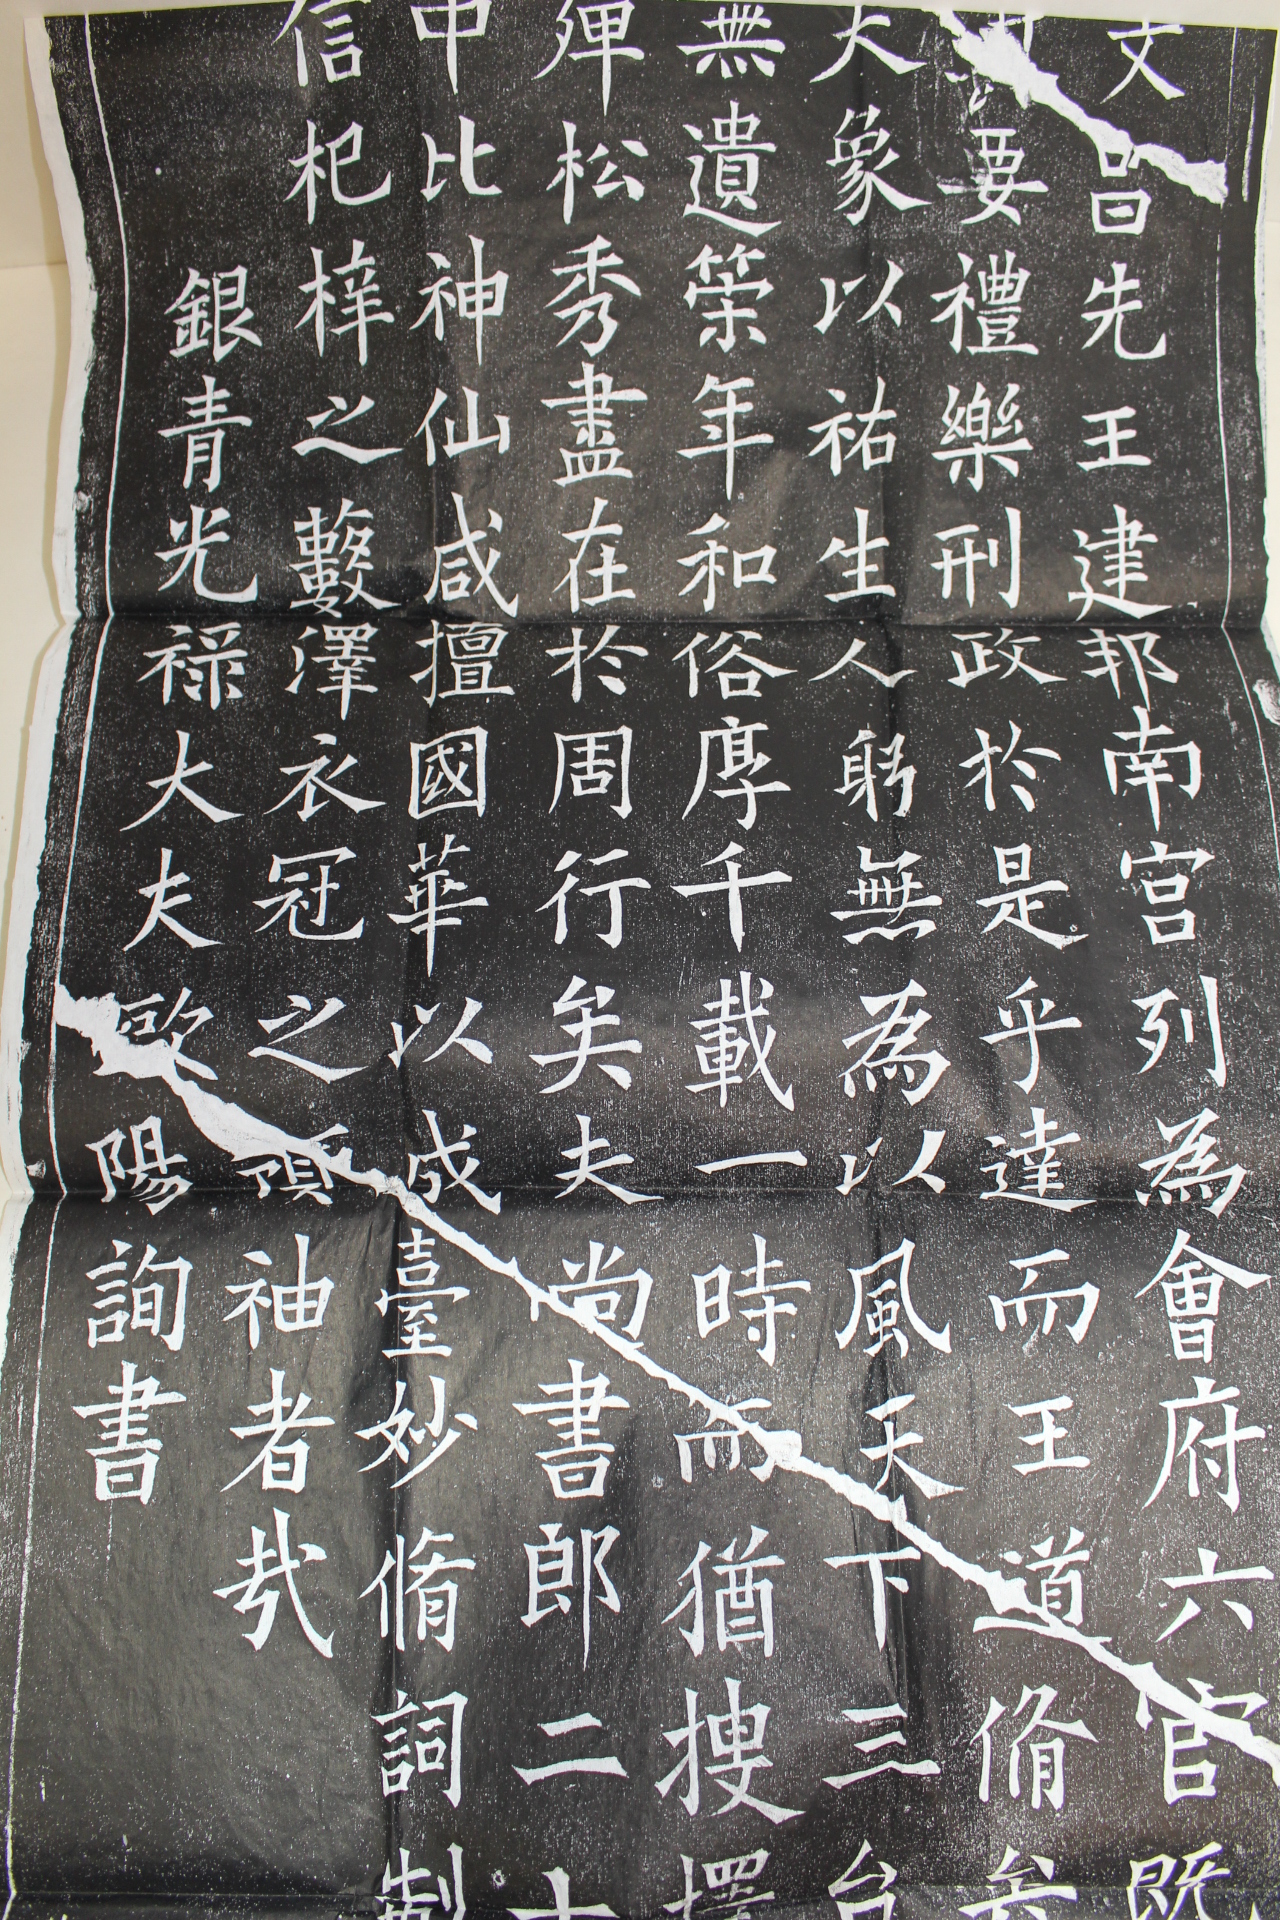 文昌先王建邦南宫列為會府六官既
要禮樂刑政於是乎達而王道脩矣
大象以祐生人躬無為以風天下三台
無遺策年和俗厚千載一時而猶搜擇
殫松秀盡在於周行矣夫尚書郎二十
中比神仙咸擅國華以成臺妙脩詞制
信杞梓之藪澤衣冠之領袖者哉
銀青光祿大夫歐陽詢書